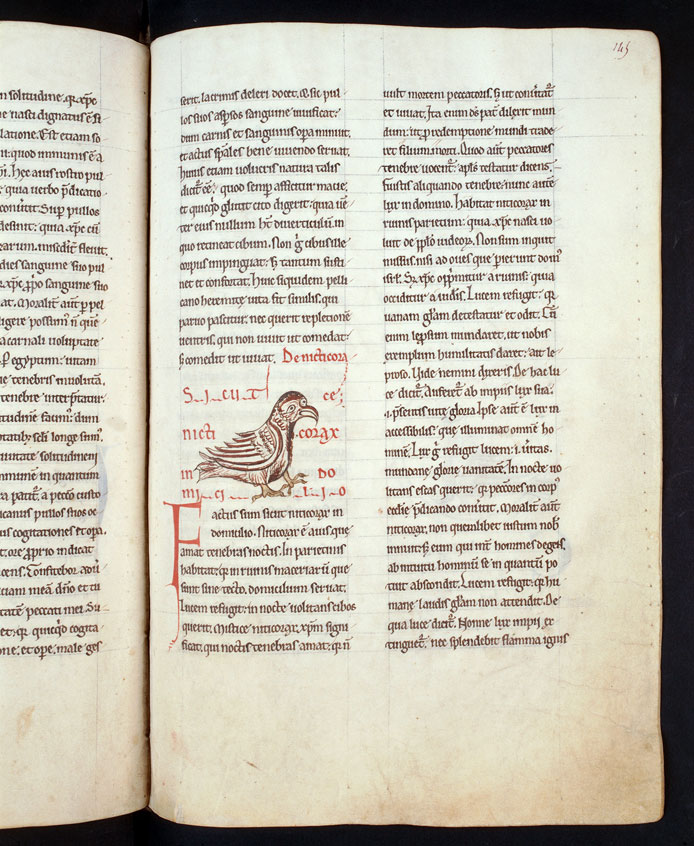 n solitudine. q̄ xp̄c
e nasci dignatus ē
latione. Est etiam so
quod inmunis ē a
Hec auis rostro pul
quia uerbo p̄dicatio
conu̅tit. Sup̄ pullos
desinit: quia xp̄c cū
rarum. misc̅dit̅ fleuit.
dies sanguine suo pul
xp̄c p̄p̄o sanguine suo
at. Moralit̅ aut̅ p̄ pel
ligere possum' n̄ que
carnali uoluptate
P egyptum: uitam
e tenebris inuoluta̅.
tenebre interp̄tatur.
litudine facim': dum
longe sum'.
uitate solitudinem
inmune̅ in quantum
patit̅. a pecc̅o custo
icanus pullos suos oc
cogitationes et opa.
ore p̄p̄rio iudicat
cens. Confitebor adu̅
iniusticiam mea̅ dn̄o et tu
tate̅ peccati mei. Su
et: q̄ quicq̄d cogita
one. et ope. male ges
145
serit: lacrimis deleri docet. & sic pul
los suos asp̄sos sanguine uiuificat:
dum carnis et sanguinis opa minuit.
et actus sp̄ales bene uiuendo seruat.
huius etiam uolucris natura talis
dicit̅ e̅e̅: quod semp̄ afficitur macie:
et quicq̄d glutit cito digerit: quia ue̅
ter eius nullum ht̅ diuerticulu̅ in
quo retineat cibum. Non g̅ cibus ille
corpus impinguat: s; tantum susti
net et confortat. Huic siquidem pelli
cano heremite uita fit similis. qui
paruo pascitur: nec querit repletione̅
uentris. qui non uiuit ut comedat:
s; comedit ut uiuat. De nicticora
ce;
SICUT
nicti corax
in do
mi ci li o
Factus sum sicut niticorax in
domicilio. Niticorax e̅ auis que
amat tenebras noctis. In parietinis
habitat: q̄ in ruinis maceriaru̅ que
sunt sine tecto. domicilium seruat.
Lucem refugit: in nocte uolitans cibos
querit. Mistice niticorax. xp̅m signi
ficat: qui noctis tenebras amat: q̄ n̄
uult mortem peccatoris. s; ut conu̅tat̅
et uiuat. Ita enim ds̅ pat̅ dilexit mun
dum: ut p̄ redemptione mundi trade
ret filium morti. Quod aut̅ peccatores
tenebre uocent̅: apl̅s testatur dicens.
Fuistis aliquando tenebre: nunc aute̅
lux in domino. Habitat niticorax in
ruinis parietum: quia xp̄c nasci uo
luit de pp̄lo iudeoꝝ. Non sum inquit
missus. nisi ad oues que perierunt dom'
isrl̅. S; xp̄c opp̄mitur a ruinis: quia
occiditur a iudeis. Lucem refugit: q̄
uanam gl̅am detestatur et odit. Cu̅
enim lep̄sum mundaret. ut nobis
exemplum humilitatis daret: ait le
proso. Uide nemini dixeris. De hac lu
ce dicit̅. Auferet̅ ab impiis lux sua.
i. p̄sentis uite gloria. Ipse aut̅ e̅ lux in
accessibilis. que illuminat omne̅ ho
mine̅. Lux g̅ refugit lucem: i. ueritas.
mundane glorie uanitate̅. In nocte uo
litans escas querit: q̄ peccores in corp'
ecclie p̄dicando conu̅tit. Moralit̅ aut̅
niticorax. non quemlibet iustum nob̅
innuit: s; eum qui int̅ homines degens.
ab intuitu hominu̅ se in quantu̅ po
tuit abscondit. Lucem refugit: q̄ hu
mane laudis gl̅am non attendit. De
qua luce dicit̅. Nonne lux impii ex
tinguet̅. nec splendebit flamma ignis